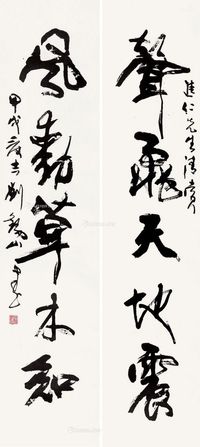 進仁先生清賞
聲飛天地震
風動草木知
甲戌夏吉劉山